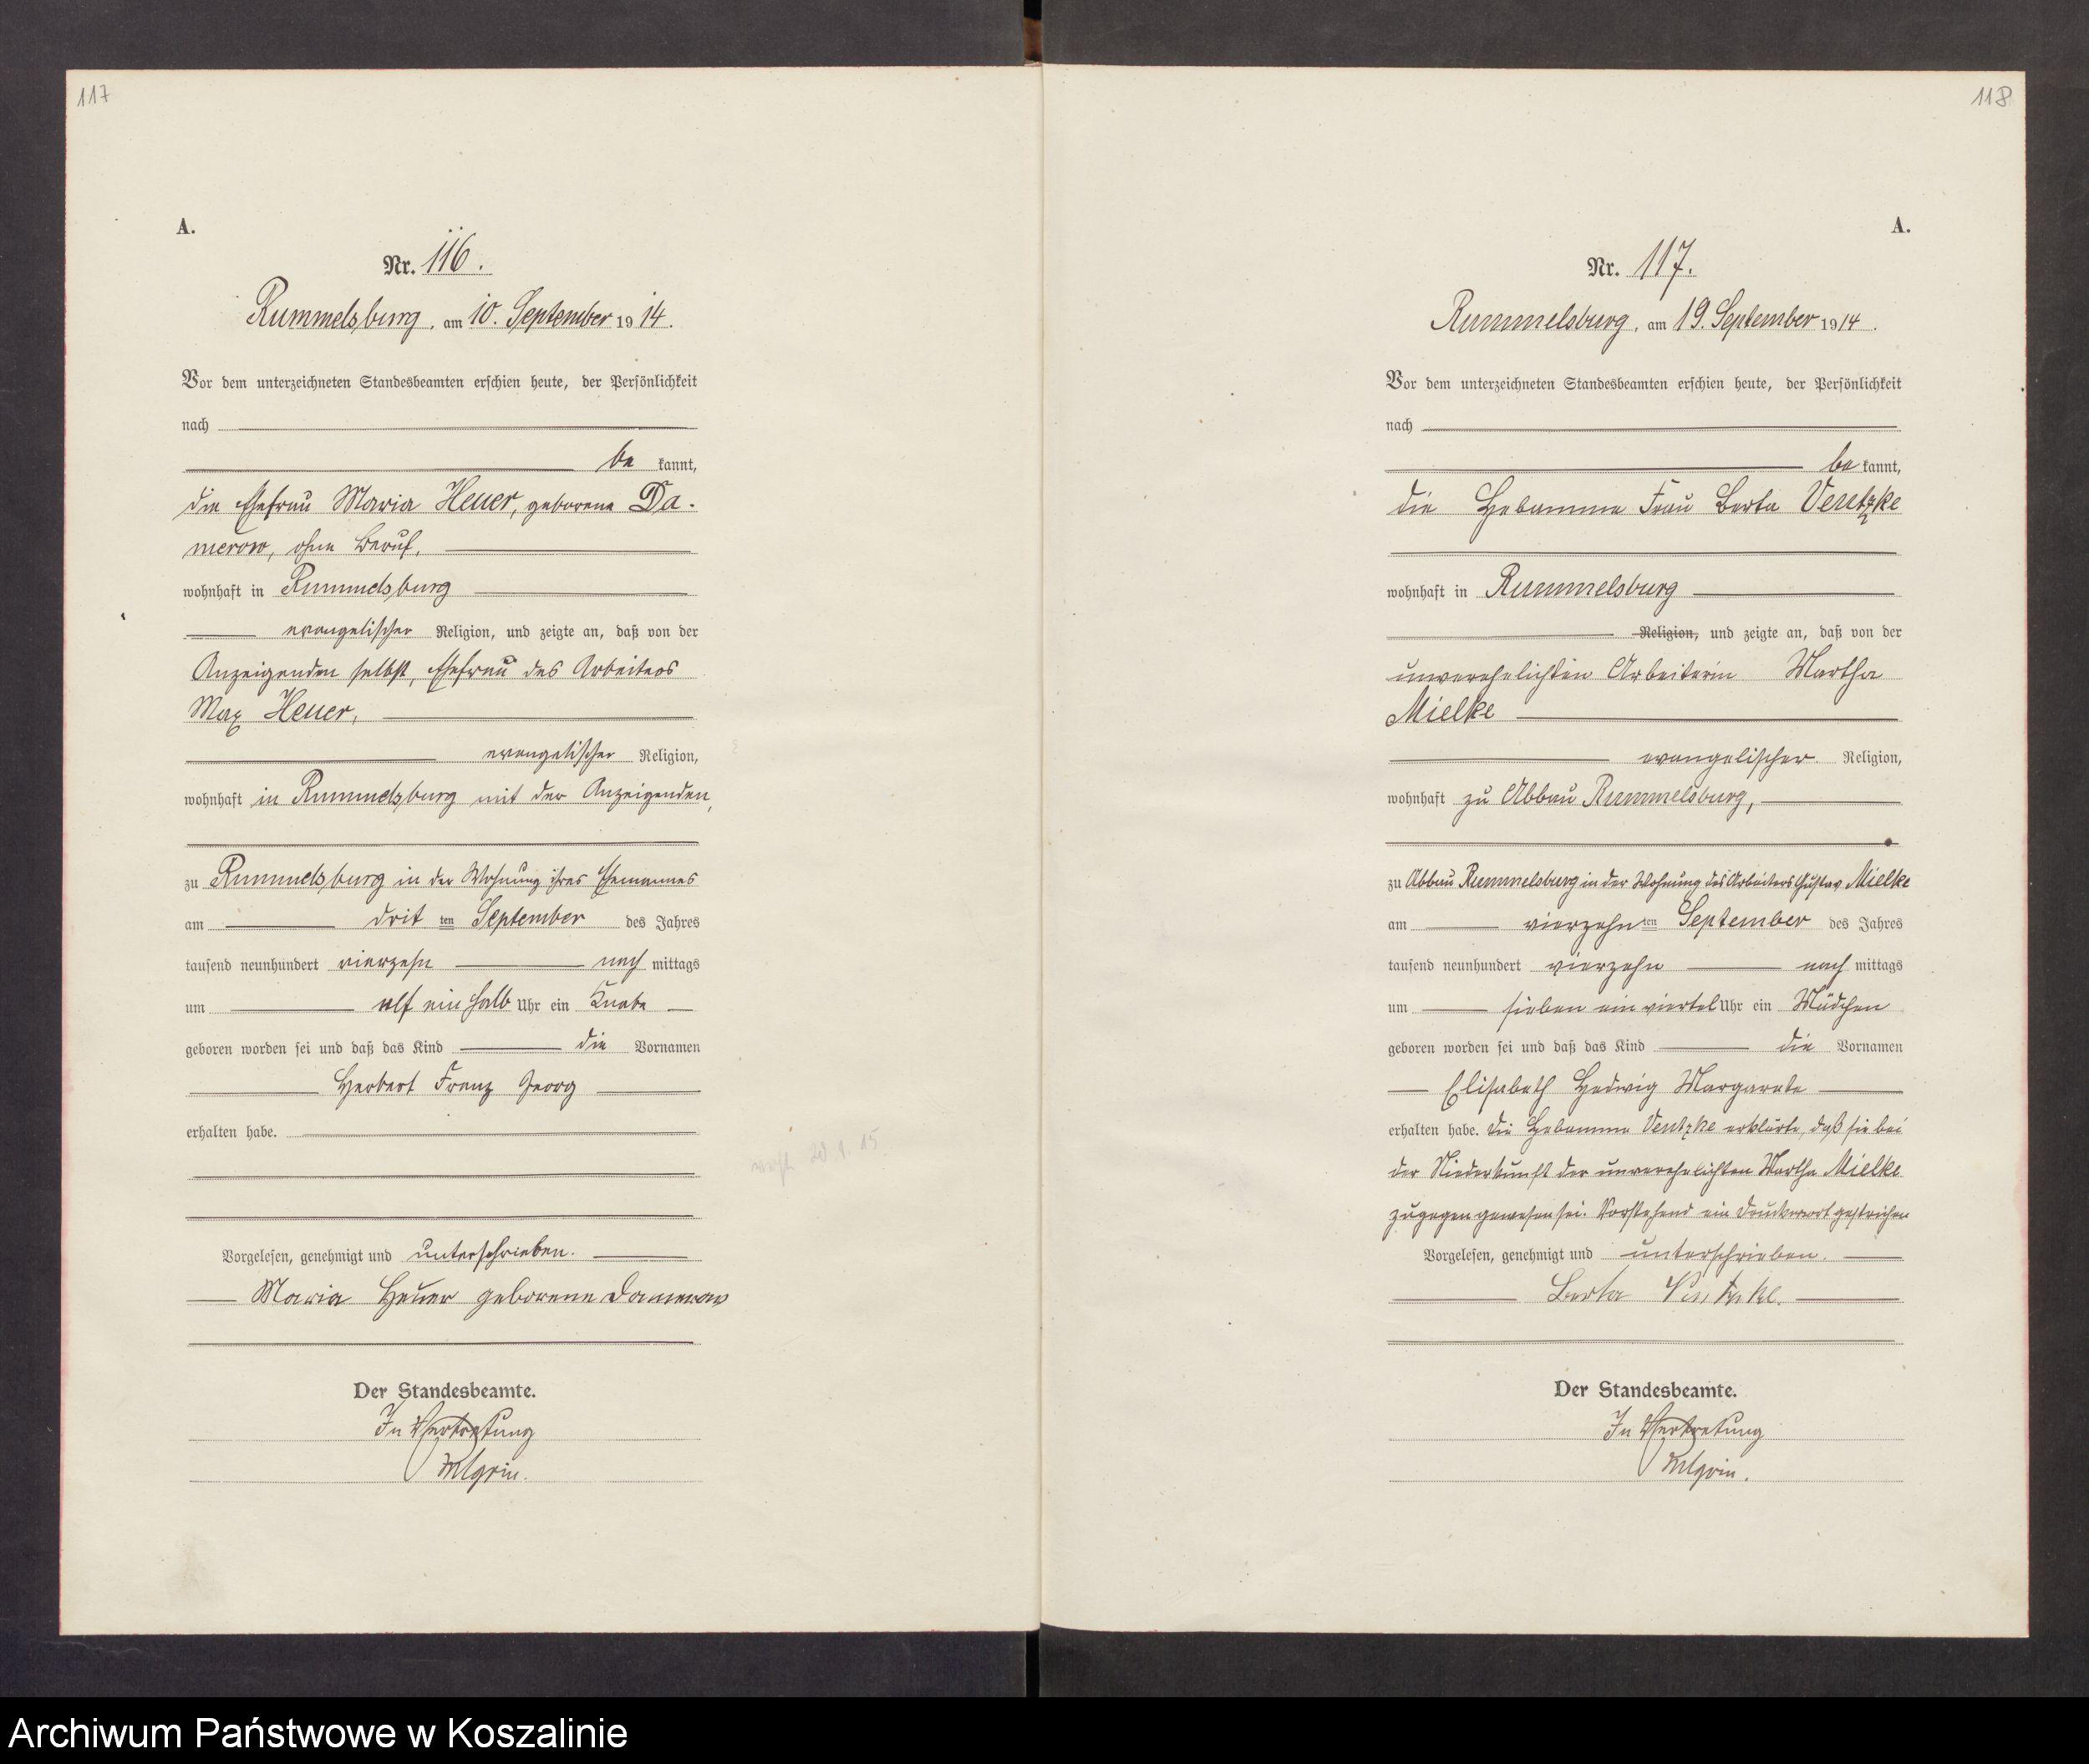 117
A.
Nr. 116.
Rummelsburg, am 10. September 1914.
Vor dem unterzeichneten Standesbeamten erschien heute, der Persönlichkeit
nach
be kannt,
die Ehefrau Maria Heuer, geborene Da-
merow, ohne Beruf,
wohnhaft in Rummelsburg
evangelischer Religion, und zeigte an, daß von der
Anzeigenden selbst, Ehefrau des Arbeiters
Max Heuer,
evangelischer Religion,
wohnhaft in Rummelsburg mit der Anzeigenden,
zu Rummelsburg in der Wohnung ihres Ehemannes
am drit ten September des Jahres
tausend neunhundert vierzehn nach mittags
um elf ein halb Uhr ein Knabe
geboren worden sei und daß das Kind die Vornamen
Herbert Franz Georg
erhalten habe.
20.1.15.
Vorgelesen, genehmigt und unterschrieben.
Maria Heuer geborene Damerow
Der Standesbeamte.
In Vertretung
118
A.
Nr. 117.
Rummelsburg, am 19. September 1914.
Vor dem unterzeichneten Standesbeamten erschien heute, der Persönlichkeit
nach
be kannt,
die Hebamme Frau Berta Ventzke
wohnhaft in Rummelsburg
Religion, und zeigte an, daß von der
unverehelichten Arbeiterin Martha
Mielke
evangelischer Religion,
wohnhaft zu Abbau Rummelsburg,
zu Abbau Rummelsburg in der Wohnung des Arbeiters Gustav Mielke
am vierzehn ten September des Jahres
tausend neunhundert vierzehn nach mittags
um sieben ein viertel Uhr ein Mädchen
geboren worden sei und daß das Kind die Vornamen
Elisabeth Hedwig Margarete
erhalten habe. Die Hebamme Ventzke erklärte, daß sie bei
der Niederkunft der unverehelichten Martha Mielke
zugegen gewesen sei. Vorstehend ein Druckwort gestrichen
Vorgelesen, genehmigt und unterschrieben.
Berta Ventzke.
Der Standesbeamte.
In Vertretung
Archiwum Państwowe w Koszalinie